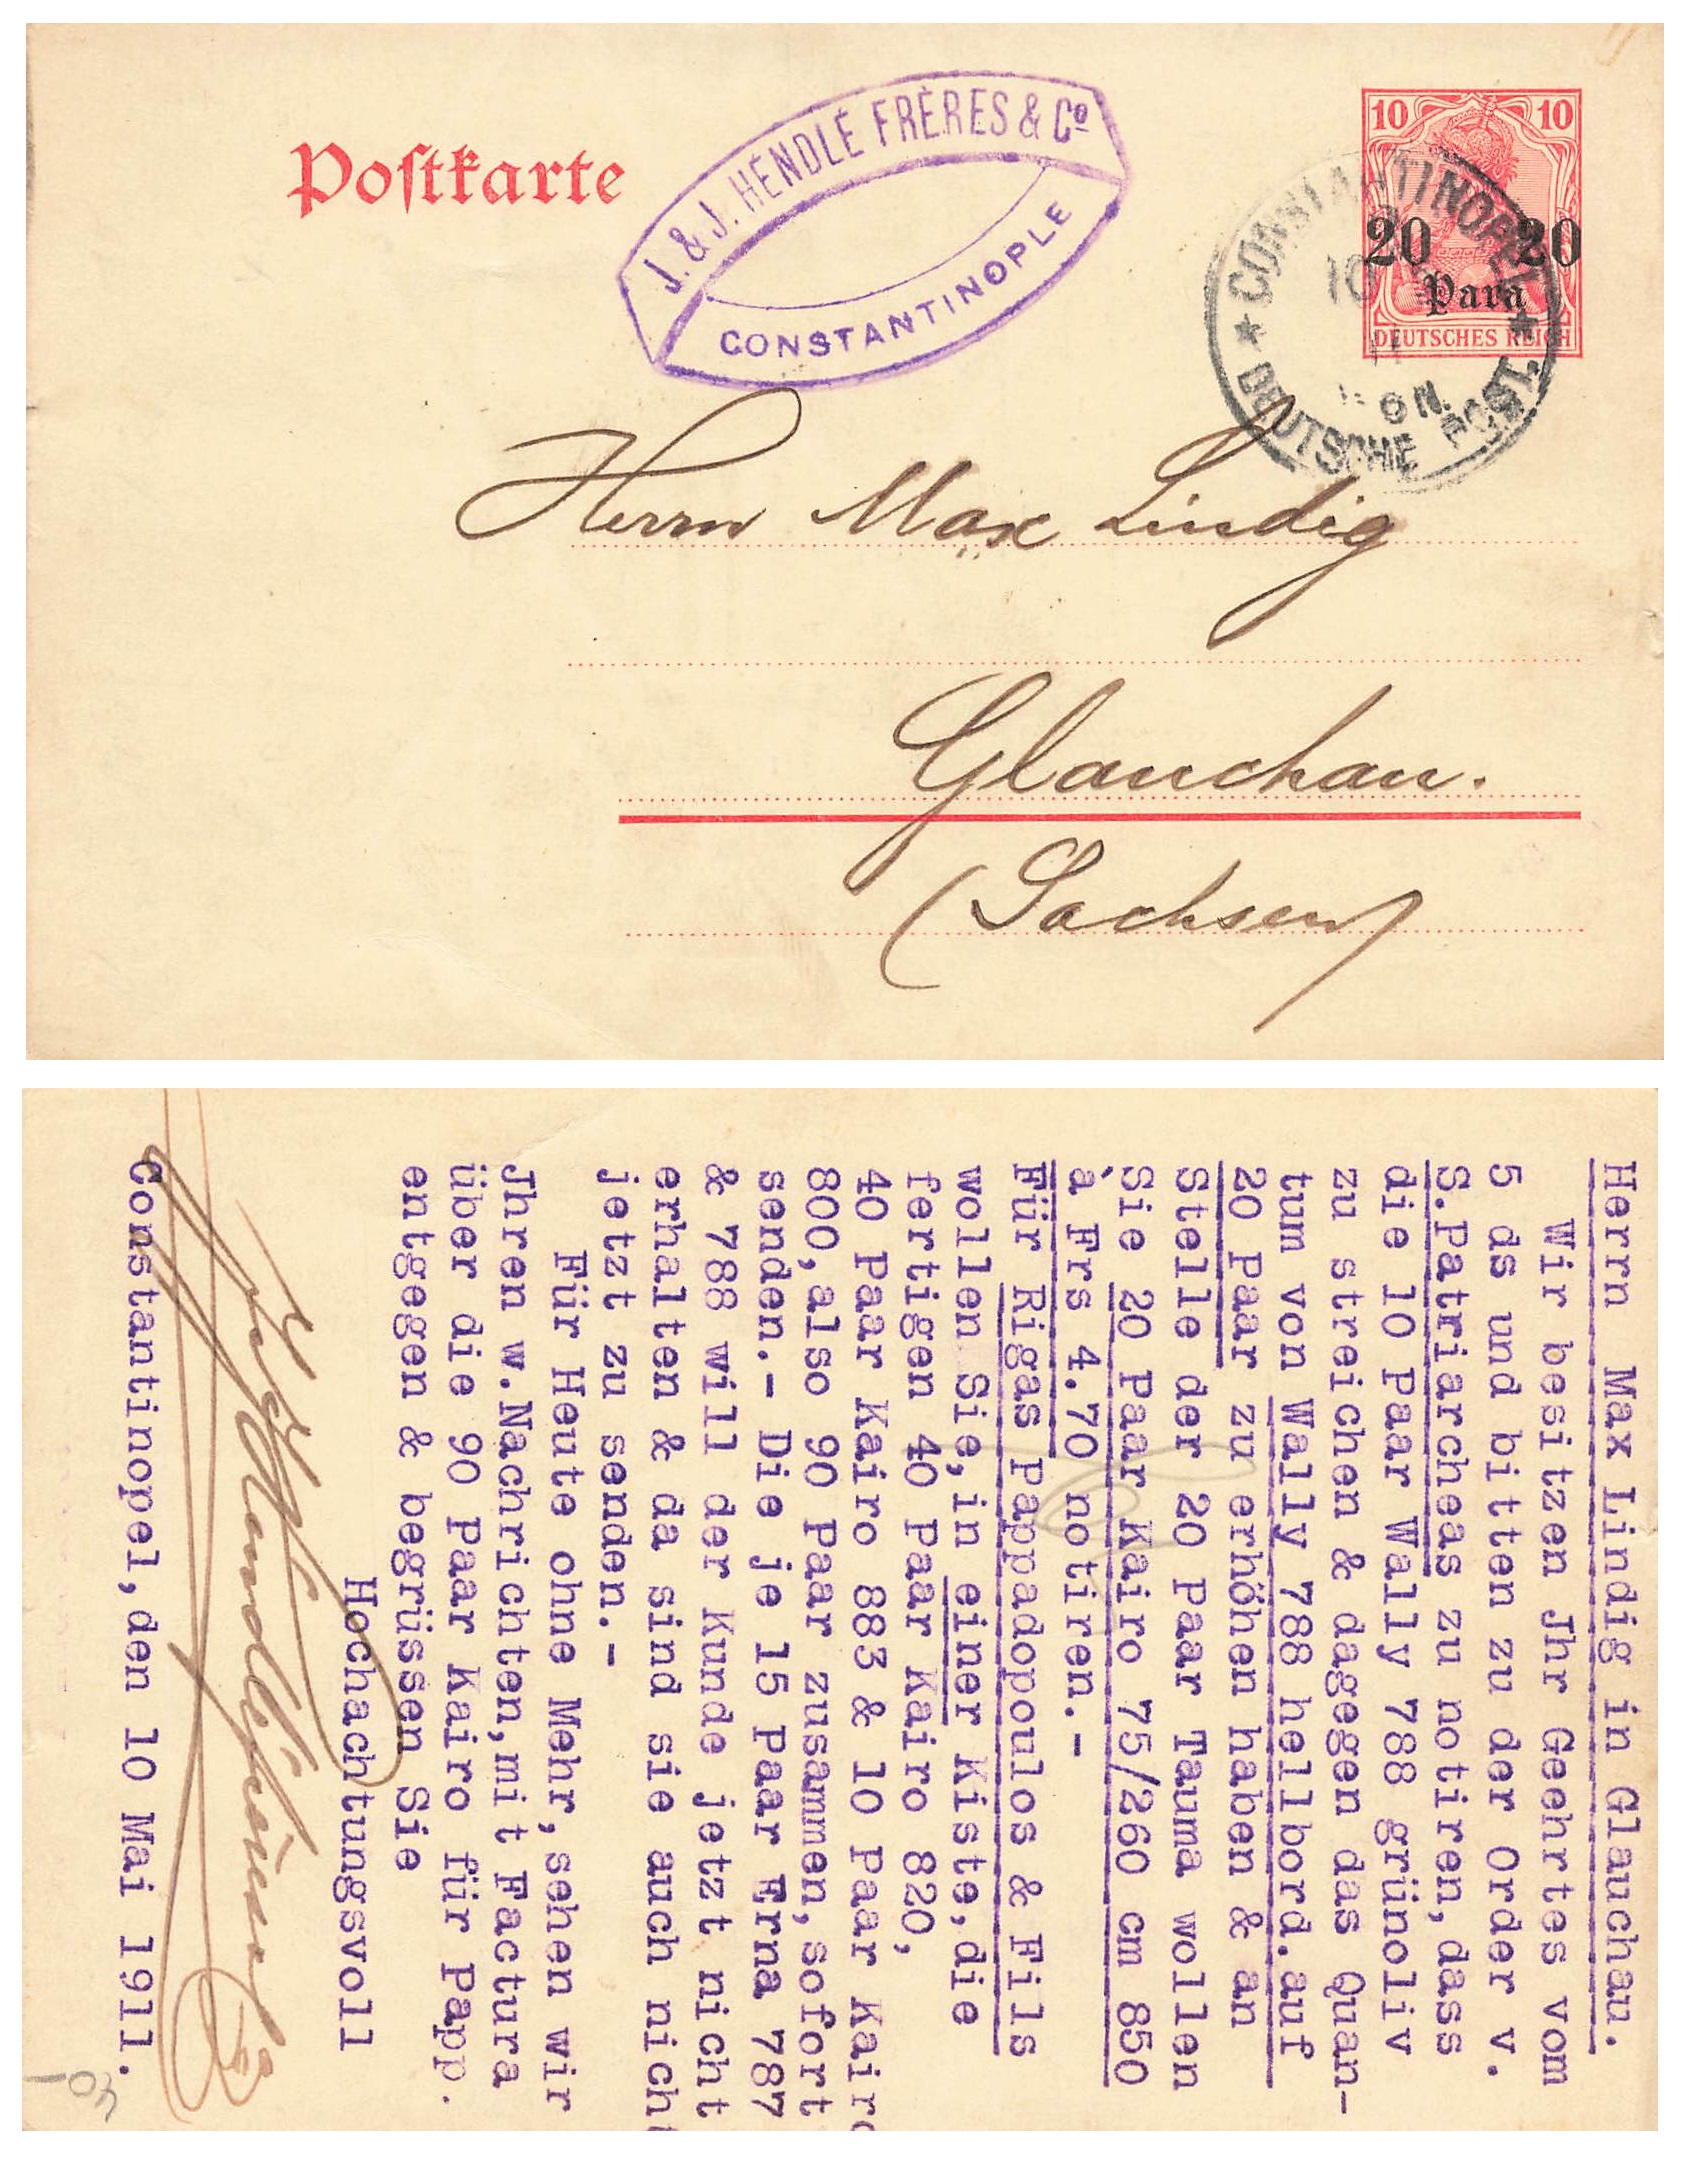 Postkarte
J. & J. HENDLÉ FRÈRES & Co
CONSTANTINOPLE
10 10
20 20
Para
DEUTSCHES REICH
CONSTANTINOPEL
10
11
DEUTSCHE POST.
Herrn Max Lindig
Glauchau.
(Sachsen)
Herrn Max Lindig in Glauchau.
Wir besitzen Jhr Geehrtes vom
5 ds und bitten zu der Order v.
S.Patriarcheas zu notiren,dass
die 10 Paar Wally 788 grünoliv
zu streichen & dagegen das Quan-
tum von Wally 788 hellbord.auf
20 Paar zu erhöhen haben & an
Stelle der 20 Paar Tauma wollen
Sie 20 Paar Kairo 75/260 cm 850
à Frs 4.70 notiren.-
Für Rigas Pappadopoulos & Fils
wollen Sie,in einer Kiste,die
fertigen 40 Paar Kairo 820,
40 Paar Kairo 883 & 10 Paar Kairo
800,also 90 Paar zusammen,sofort
senden.- Die je 15 Paar Erna 787
& 788 will der Kunde jetzt nicht
erhalten & da sind sie auch nicht
jetzt zu senden.-
Für Heute ohne Mehr,sehen wir
Jhren w.Nachrichten,mit Factura
über die 90 Paar Kairo für Papp.
entgegen & begrüssen Sie
Hochachtungsvoll
Constantinopel,den 10 Mai 1911.
30-